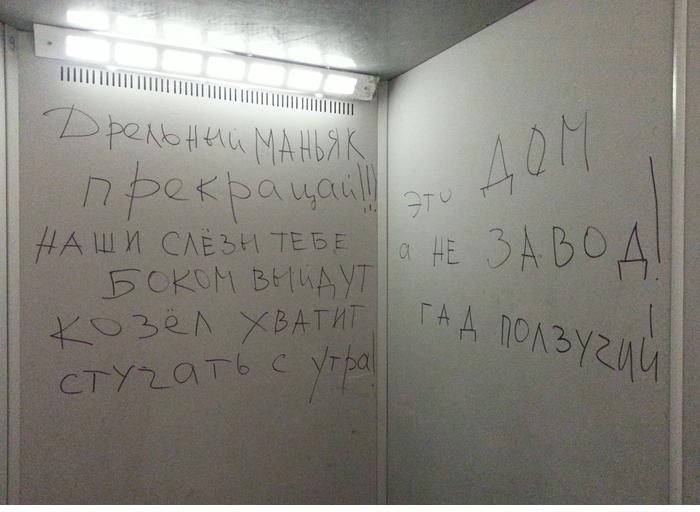 Дрельный МАНЬЯК
прекращай!!!
НАШИ СЛЁЗЫ ТЕБЕ
БОКОМ ВЫЙДУТ
КОЗЁЛ ХВАТИТ
СТУЧАТЬ С Утра!
это ДОМ
а НЕ ЗАВОД!
ГАД ПОЛЗУЧИЙ!